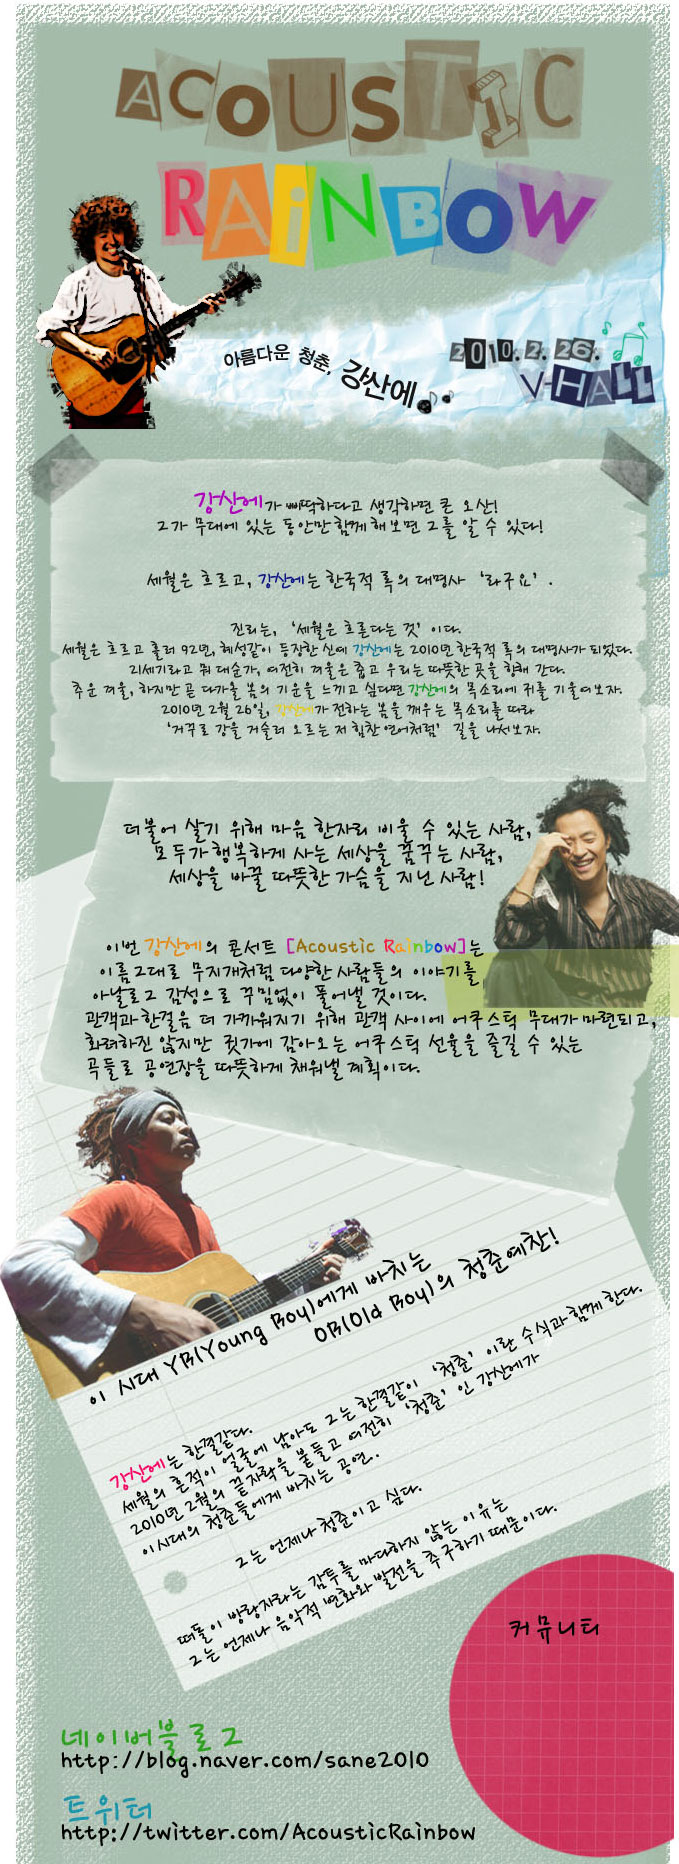 ACOUSTIC
RAiNBOW
아름다운 청춘, 강산에
2010. 2. 26.
V-HALL
강산에가 삐딱하다고 생각하면 큰 오산!
그가 무대에 있는 동안만 함께 해보면 그를 알 수 있다!
세월은 흐르고, 강산에는 한국적 록의 대명사 ‘라구요’.
진리는, ‘세월은 흐른다는 것’이다.
세월은 흐르고 흘러 92년, 혜성같이 등장한 신예 강산에는 2010년 한국적 록의 대명사가 되었다.
21세기라고 뭐 대순가, 여전히 겨울은 춥고 우리는 따뜻한 곳을 향해 간다.
추운 겨울, 하지만 곧 다가올 봄의 기운을 느끼고 싶다면 강산에의 목소리에 귀를 기울여보자.
2010년 2월 26일, 강산에가 전하는 봄을 깨우는 목소리를 따라
‘거꾸로 강을 거슬러 오르는 저 힘찬 연어처럼’ 길을 나서보자.
더불어 살기 위해 마음 한자리 비울 수 있는 사람,
모두가 행복하게 사는 세상을 꿈꾸는 사람,
세상을 바꿀 따뜻한 가슴을 지닌 사람!
이번 강산에의 콘서트 [Acoustic Rainbow]는
이름그대로 무지개처럼 다양한 사람들의 이야기를
아날로그 감성으로 꾸밈없이 풀어낼 것이다.
관객과 한걸음 더 가까워지기 위해 관객 사이에 어쿠스틱 무대가 마련되고,
화려하진 않지만 귓가에 감아오는 어쿠스틱 선율을 즐길 수 있는
곡들로 공연장을 따뜻하게 채워낼 계획이다.
이 시대 YB(Young Boy)에게 바치는
OB(Old Boy)의 청춘예찬!
강산에는 한결같다.
세월의 흔적이 얼굴에 남아도 그는 한결같이 ‘청춘’이란 수식과 함께 한다.
2010년 2월의 끝자락을 붙들고 여전히 ‘청춘’인 강산에가
이시대의 청춘들에게 바치는 공연.
그는 언제나 청춘이고 싶다.
떠돌이 방랑자라는 감투를 마다하지 않는 이유는
그는 언제나 음악적 변화와 발전을 추구하기 때문이다.
커뮤니티
네이버블로그
http://blog.naver.com/sane2010
트위터
http://twitter.com/AcousticRainbow